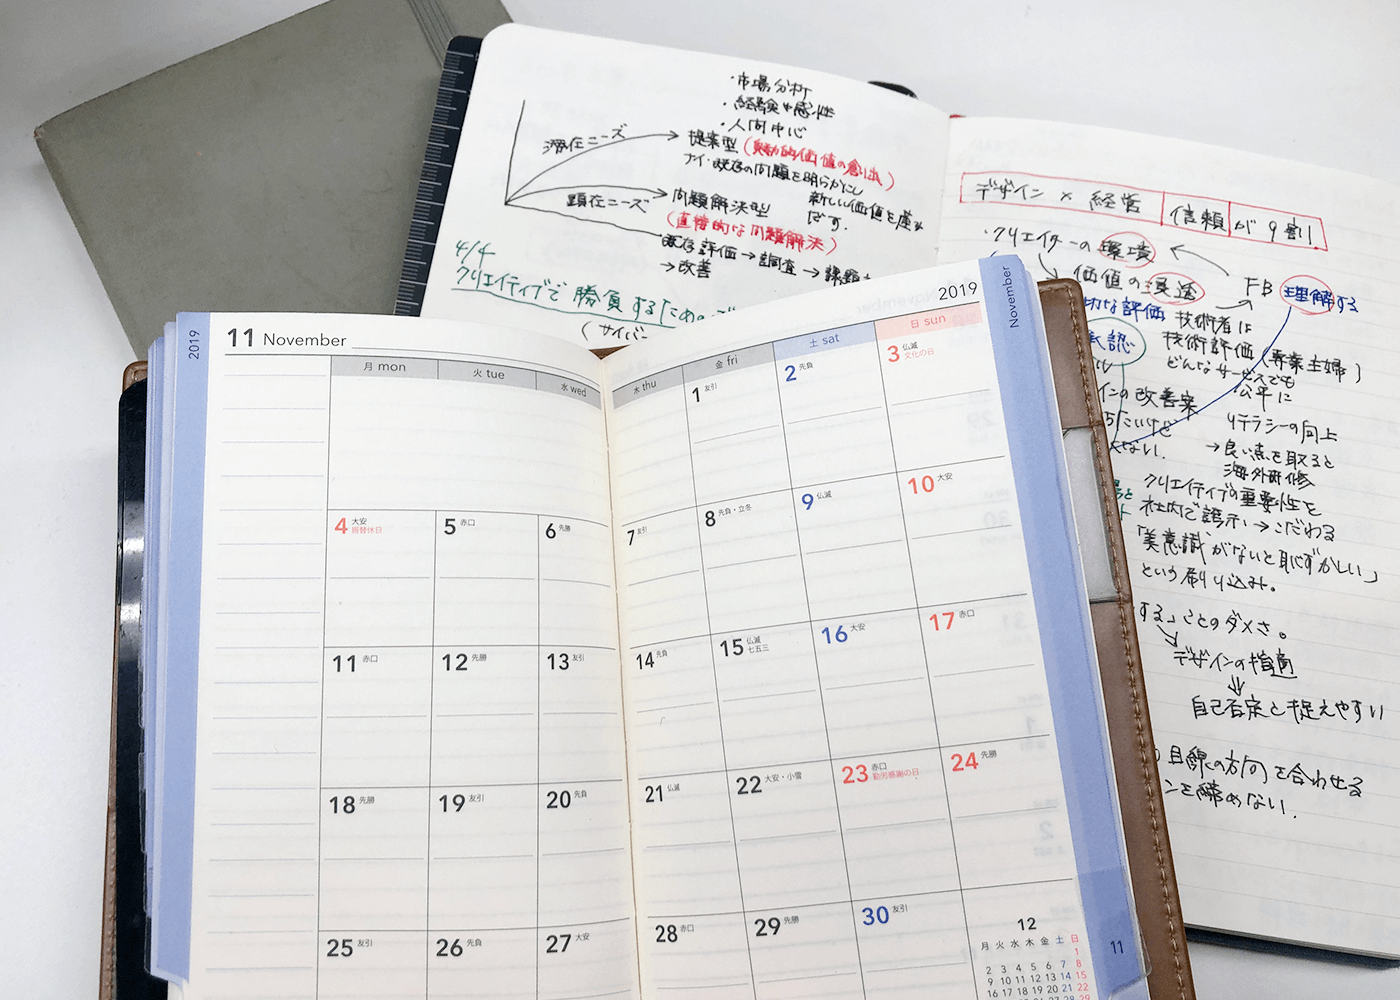 ・市場分析
・経験や感性
・人間中心
潜在ニーズ
提案型(実験的価値の創出)
ナイ・既存の問題を明らかにし
新しい価値を産み
だす.
顕在ニーズ
問題解決型
(直接的な問題解決)
既存評価→調査→課題
→改善
4/4
クリエイティブで勝負する「ための
(サイバー
デザイン × 経営 信頼が9割
・クリエイターの環境
価値の
FB 理解する
切な評価
技術者は
技術評価(専業主婦)
どんなサービスでも
公平に
承認
インの改善案
リテラシーの向上
→良い点を取ると
海外研修
クリエイティブの重要性を
社内で誇示→こだわる
「美意識がないと恥ずかしい」
という刷り込み。
する」ことのダメさ。
デザインの指摘
自己否定と捉えやすい
目線の方向を合わせる
ンを諦めない.
2019
11 November
月 mon
火 tue
水 wed
4 大安 振替休日
5 赤口
6 先勝
11 赤口
12 先勝
13 友引
18 先勝
19 友引
20 先負
25 友引
26 先負
27 大安
2019
November
木 thu
金 fri
土 sat
日 sun
1 友引
2 先負
3 仏滅 文化の日
7 友引
8 先負・立冬
9 仏滅
10 大安
14 先負
15 仏滅 七五三
16 大安
17 赤口
21 仏滅
22 大安・小雪
23 赤口 勤労感謝の日
24 先勝
28 赤口
29 先勝
30 友引
12
月 火 水 木 金 土 日
1
2 3 4 5 6 7 8
9 10 11 12 13 14 15
16 17 18 19 20 21 22
27 28 29
11